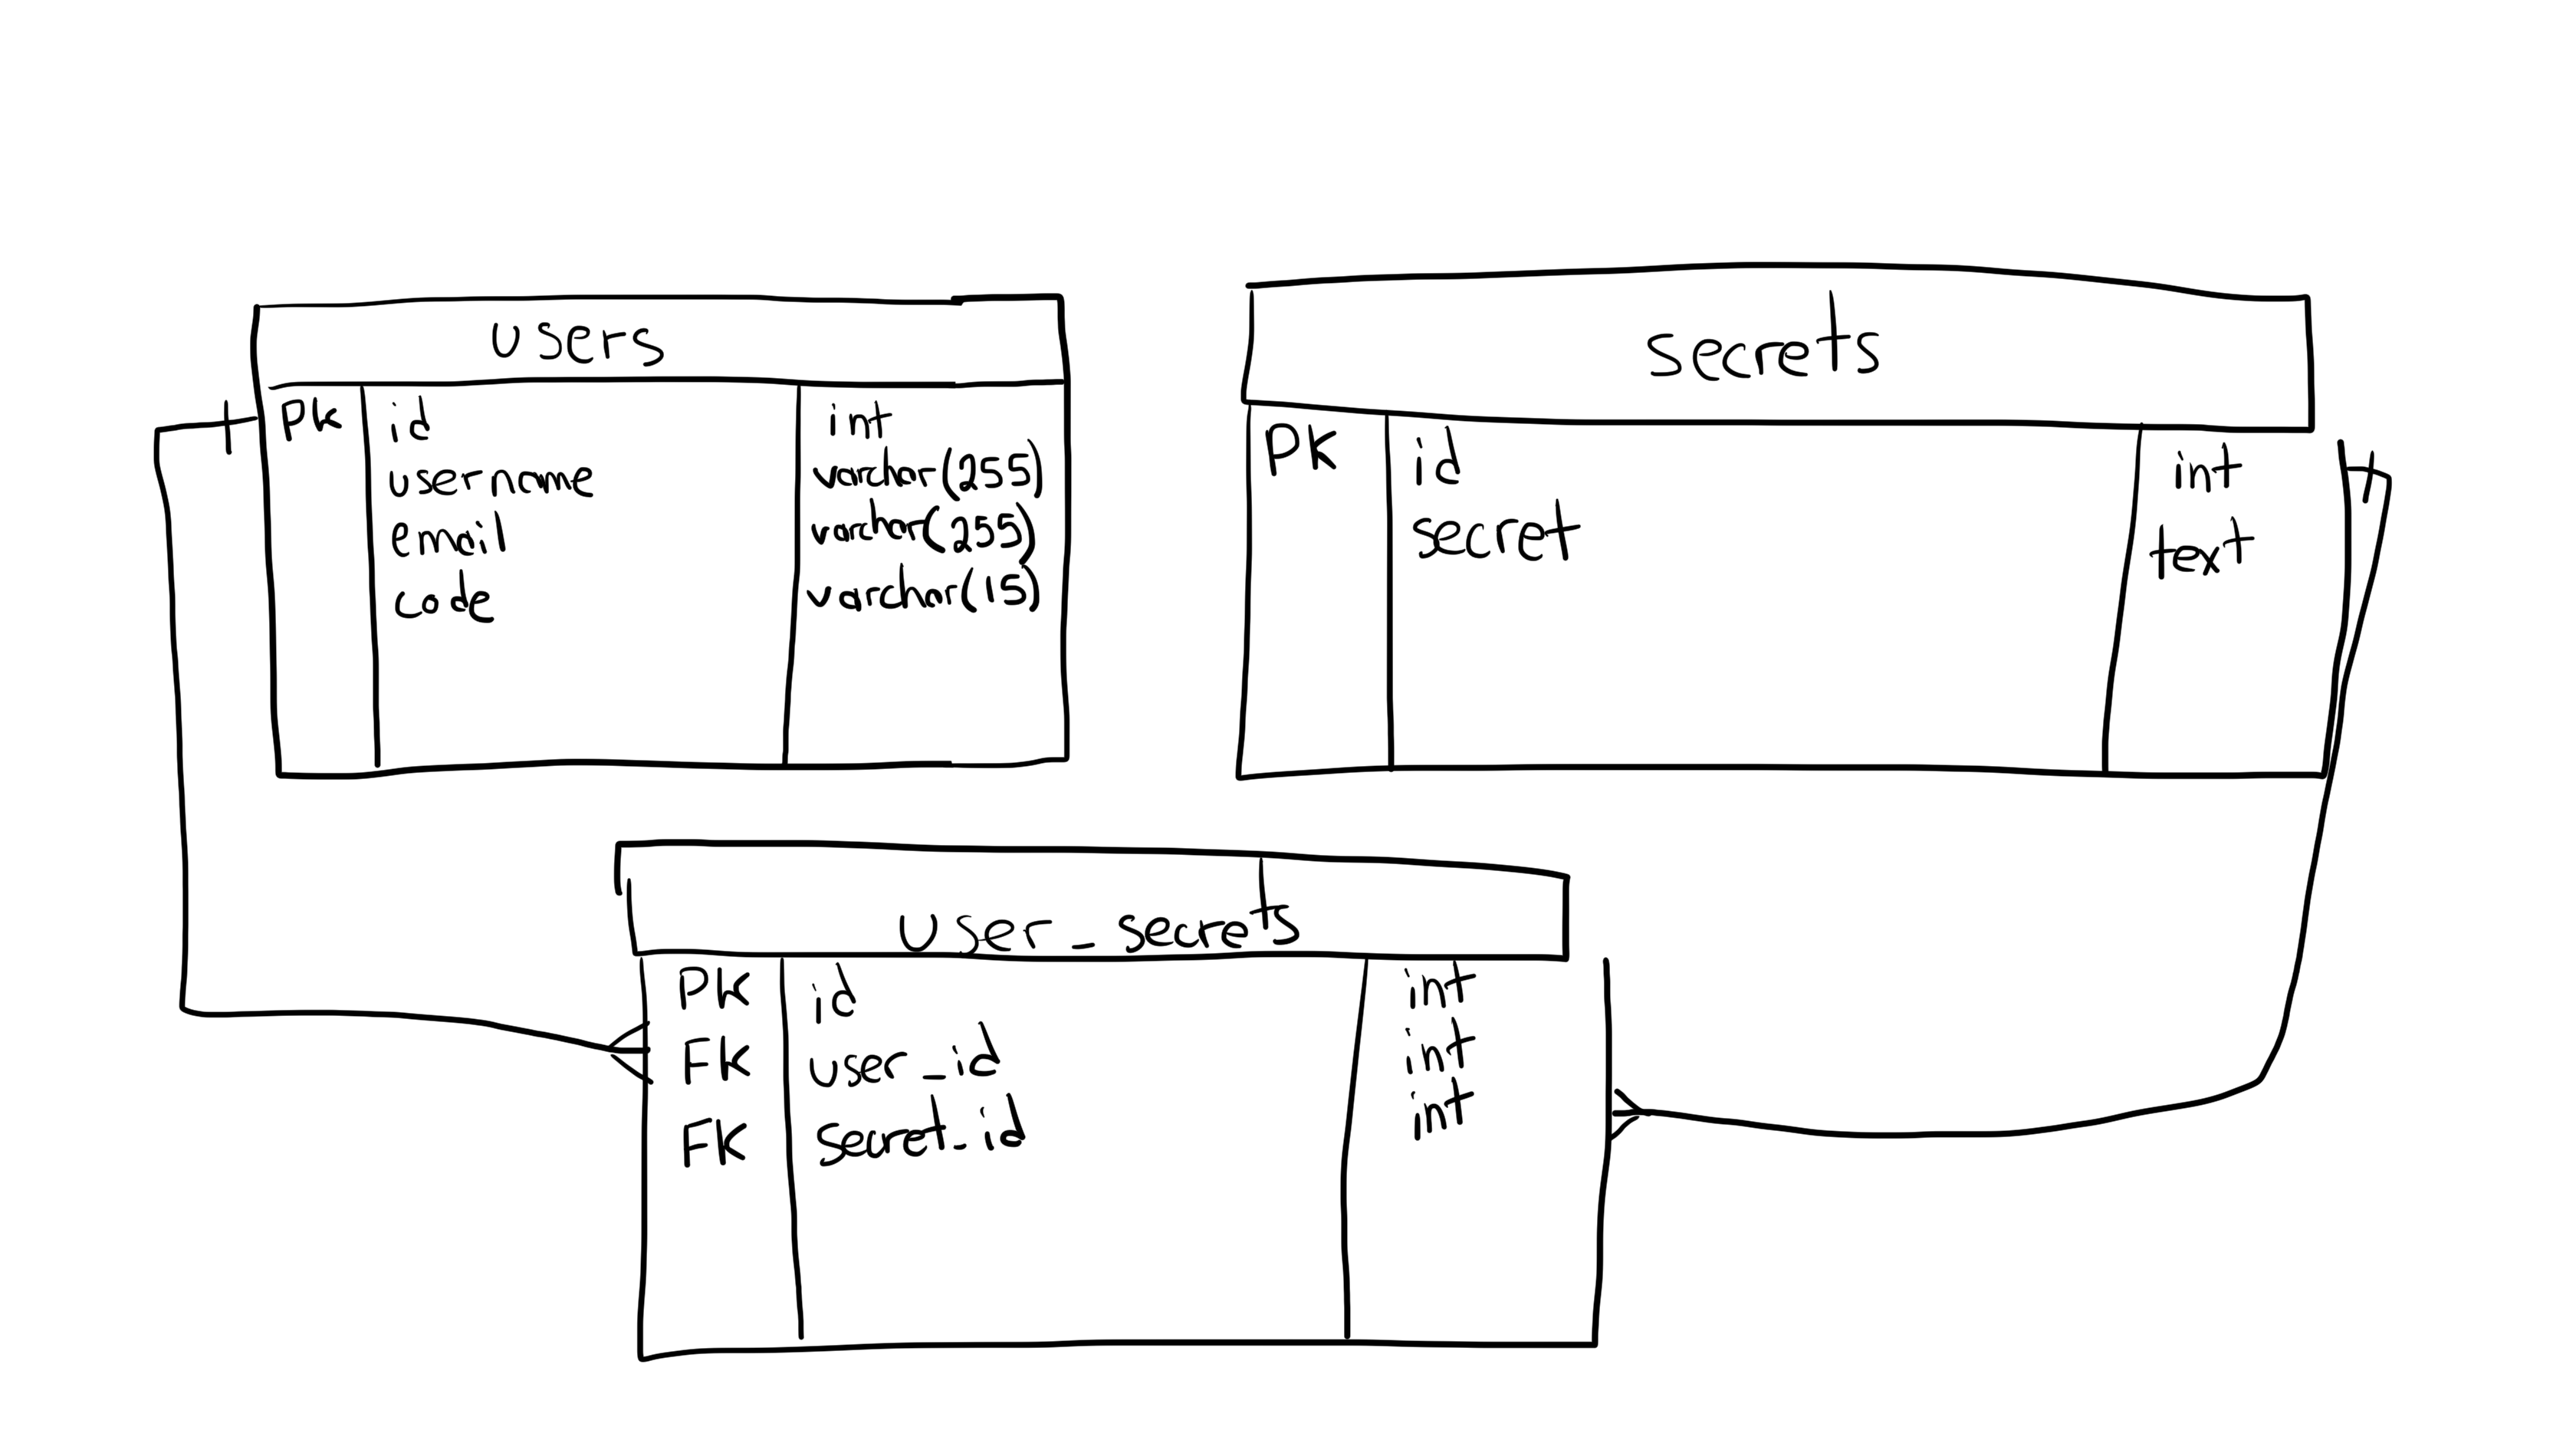 users
PK id int
username varchar(255)
email varchar(255)
code varchar(15)
secrets
PK id int
secret text
user_secrets
PK id int
FK user_id int
FK secret_id int